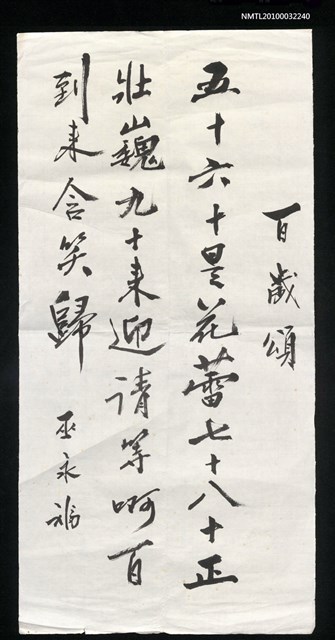 NMTL20100032240
百歲頌
五十六十是花蕾七十八十正
壯巍九十來迎請等啊百
到來含笑歸
巫永福